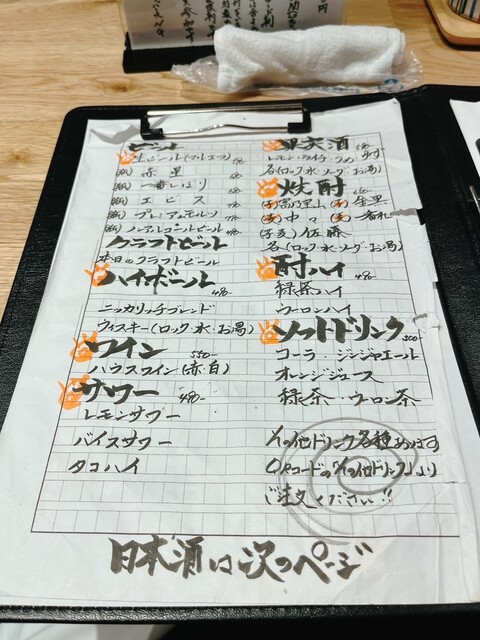 ビール
生ビール(マルエフ)
(瓶) 赤星
(瓶) 一番しぼり
(瓶) エビス
(瓶) プレミアムモルツ
(瓶) ノンアルコールビール
クラフトビール
本日のクラフトビール
ハイボール 490-
ニッカリッチブレンド
ウィスキー(ロック・水・お湯)
ワイン 550-
ハウスワイン(赤・白)
サワー 490-
レモンサワー
バイスサワー
タコハイ
果実酒
レモン・ライチ・うめ・ゆず
各(ロック・水・ソーダ・お湯)
焼酎
(芋)富乃宝山 (芋)
(麦)中々 (麦)
(芋麦)佐藤
各(ロック・水・ソーダ・お湯)
酎ハイ 490-
緑茶ハイ
ウーロンハイ
ソフトドリンク 300-
コーラ・ジンジャエール
オレンジジュース
緑茶・ウーロン茶
その他ドリンク各種あります
QRコードの「その他ドリンク」より
ご注文ください!!
日本酒は次のページ